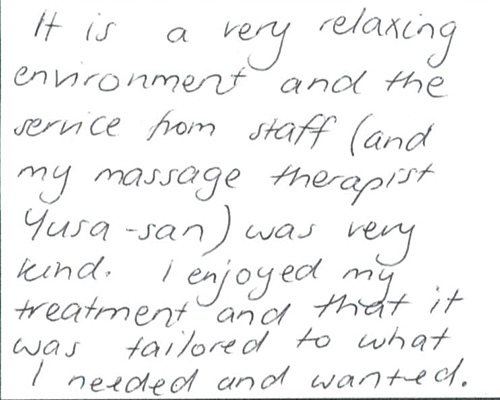 It is a very relaxing
environment and the
service from staff (and
my massage therapist
Yusa-san) was very
kind. I enjoyed my
treatment and that it
was tailored to what
I needed and wanted.